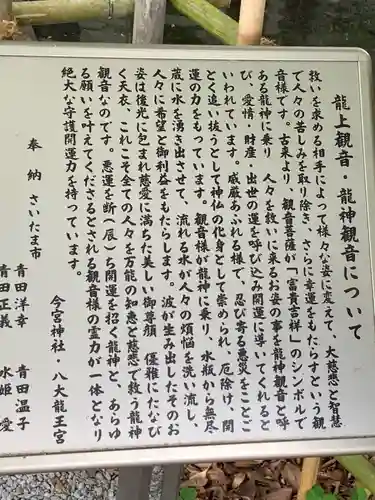 龍上観音・龍神観音について
救いを求める相手によって様々な姿に変えて、大慈悲と智慧
で人々の苦しみを取り除き、さらに幸運をもたらすという観
音様です。古来より、観音菩薩が「富貴吉祥」のシンボルで
ある龍神に乗り、人々を救いに来るお姿の事を龍神観音と呼
び、愛情・財産・出世の運を呼び込み開運に導いてくれると
いわれています。威厳あふれる様で、忍び寄る悪災をことご
とく追い払うとして神仏の化身として崇められ、厄除け、開
運の力をもっています。観音様が龍神に乗り、水瓶から無尽
蔵に水を湧き出させて、流れる水が人々の煩悩を洗い流し、
人々に希望と御利益をもたらします。波が生み出したそのお
姿は後光に包まれ慈愛に満ちた美しい御尊顔、優雅にたなび
く天衣、これこそ全ての人々を万能の知恵と慈悲で救う龍神
観音なのです。悪運を断(辰)ち開運を招く龍神と、あらゆ
る願いを叶えてくださるとされる観音様の霊力が一体となり
絶大な守護開運力を持っています。
今宮神社・八大龍王宮
奉納 さいたま市
青田洋幸 青田温子
青田正義 水姫愛